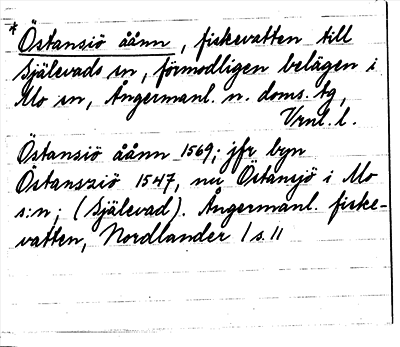 *Östansiö åånn, fiskevatten till
Själevads sn, förmodligen belägen i
Mo sn, Ångermanl. n. doms. tg,
Vrnl. l.
Östansiö åånn 1569; jfr byn
Östanszió 1547, nu Östansjö i Mo
s:n; (Själevad). Ångermanl. fiske-
vatten, Nordlander 1 s. 11